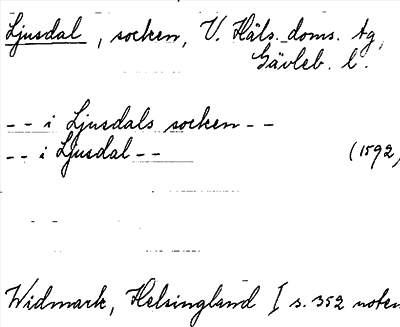 Ljusdal, socken, V. Häls. doms. tg,
Gävleb. l.
-- i Ljusdals socken --
-- i Ljusdal --
(1592)
Widmark, Helsingland I s. 352 noten